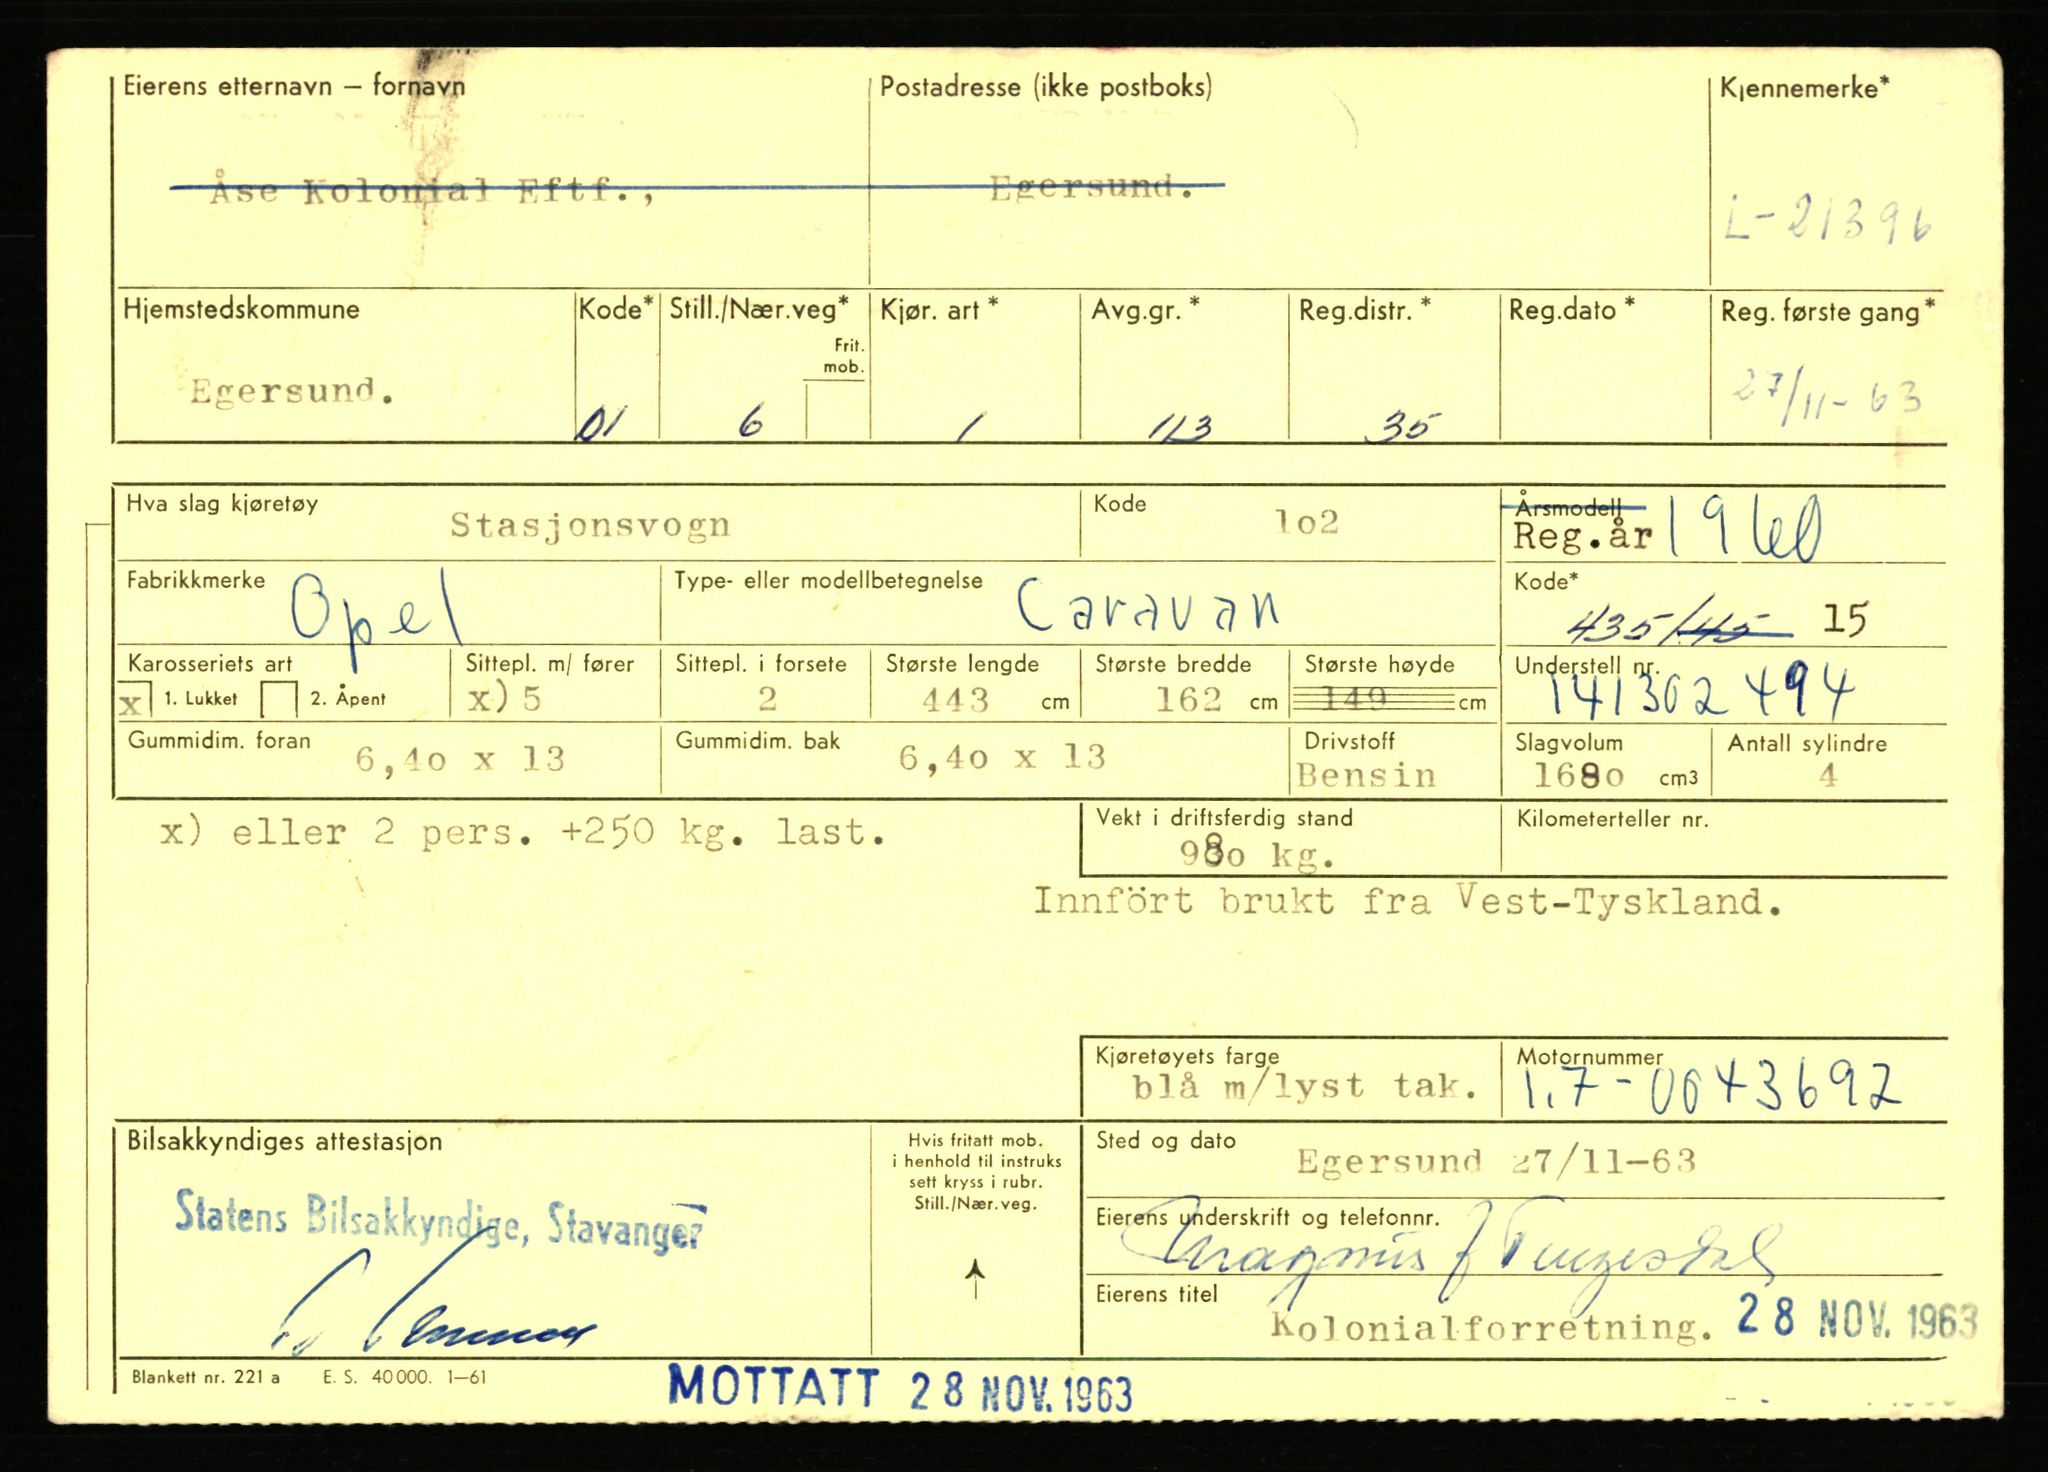 Eierens etternavn – fornavn Postadresse (ikke postboks) Kjennemerke*
Åse Kolonial Eftf., Egersund. L-21396
Hjemstedskommune Kode* Still./Nær.veg* Kjør. art* Avg.gr.* Reg.distr.* Reg.dato* Reg. første gang*
Frit.
mob.
Egersund. 01 6 1 113 35 27/11-63
Hva slag kjøretøy Stasjonsvogn Kode 1o2 Årsmodell
Reg.år 1960
Fabrikkmerke Opel Type- eller modellbetegnelse Caravan Kode*
435/45 15
Karosseriets art Sittepl. m/ fører Sittepl. i forsete Største lengde Største bredde Største høyde Understell nr.
x 1. Lukket 2. Åpent x) 5 2 443 cm 162 cm 149 cm 141302494
Gummidim. foran 6,4o x 13 Gummidim. bak 6,4o x 13 Drivstoff Slagvolum Antall sylindre
Bensin 168o cm3 4
x) eller 2 pers. +250 kg. last. Vekt i driftsferdig stand Kilometerteller nr.
98o kg.
Innfört brukt fra Vest-Tyskland.
Kjøretøyets farge Motornummer
blå m/lyst tak. 1.7-0043692
Bilsakkyndiges attestasjon Hvis fritatt mob. Sted og dato
i henhold til instruks
sett kryss i rubr.
Still./Nær.veg.
Egersund 27/11-63
Statens Bilsakkyndige, Stavanger
Eierens underskrift og telefonnr.
Magnus
Eierens titel
Kolonialforretning. 28 NOV. 1963
Blankett nr. 221 a E. S. 40 000. 1–61
MOTTATT 28 NOV. 1963